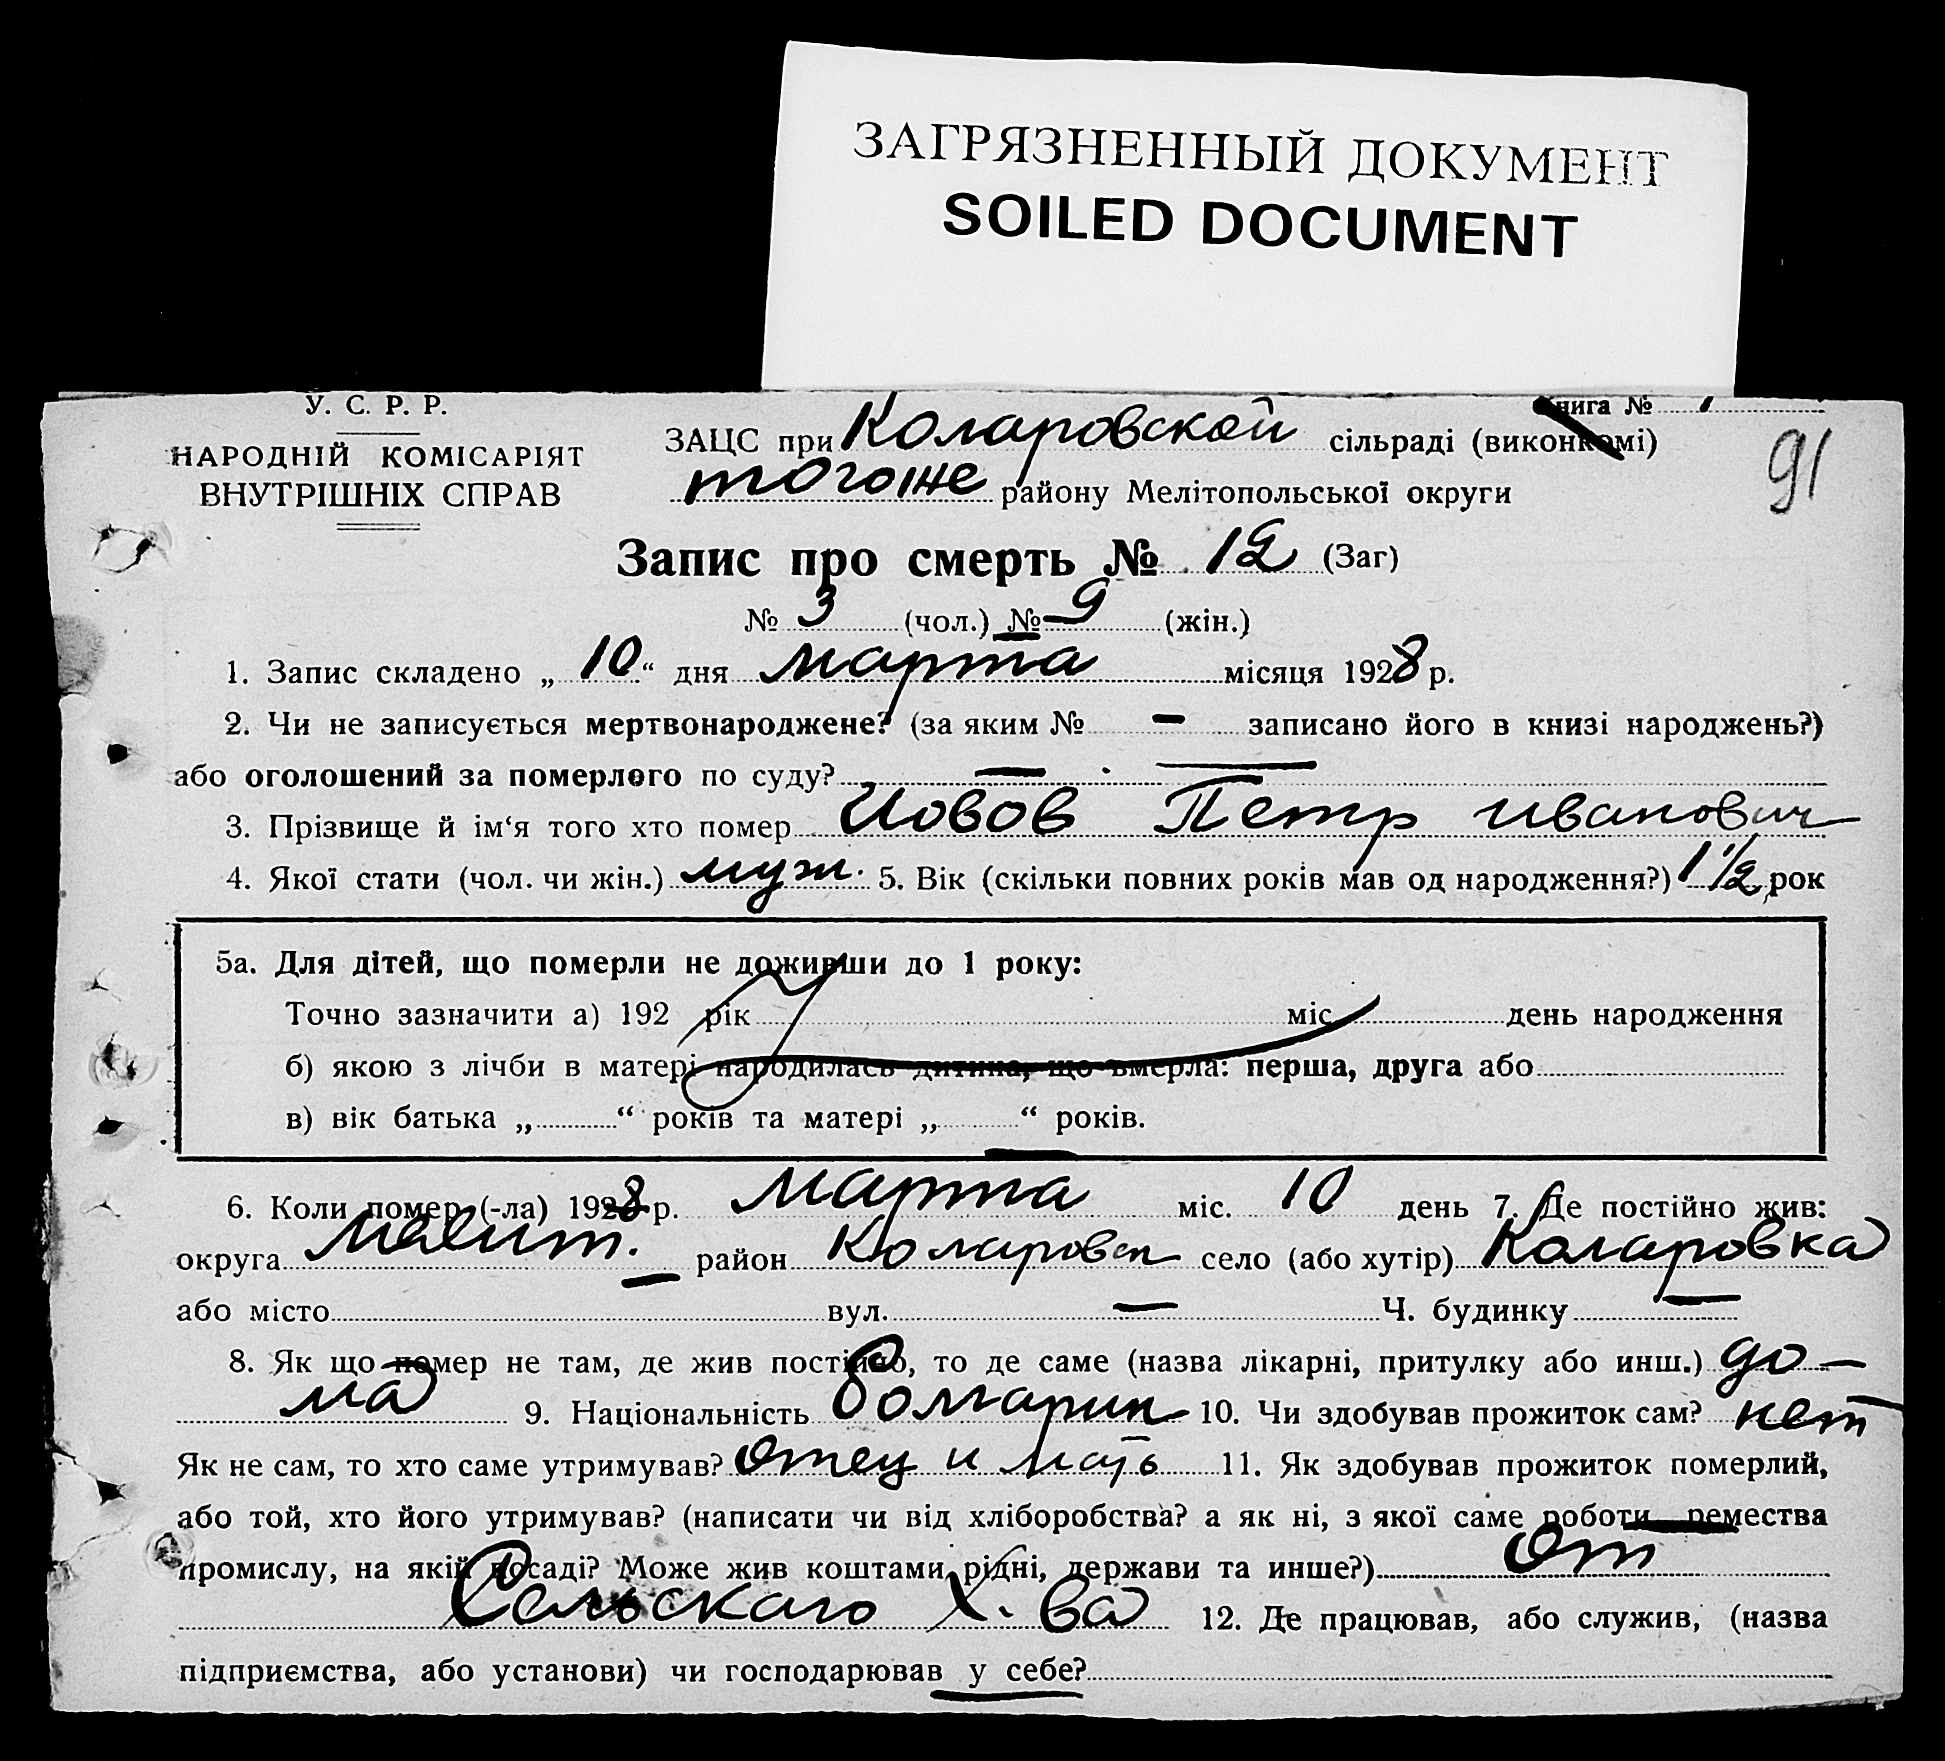 ЗАГРЯЗНЕННЫЙ ДОКУМЕНТ
SOILED DOCUMENT
У. С. Р. Р.
НАРОДНІЙ КОМІСАРІЯТ
ВНУТРІШНІХ СПРАВ
Книга №
ЗАЦС при Коларовской сільраді (виконкомі)
91
тогоже району Мелітопольської округи
Запис про смерть № 12 (Заг)
№ 3 (чол.) № 9 (жін.)
1. Запис складено „ 10 “ дня марта місяця 1928 р.
2. Чи не записується мертвонароджене? (за яким № — записано його в книзі народжень?)
або оголошений за померлого по суду? —
3. Прізвище й ім‘я того хто помер Иовов Петр Иванович
4. Якої стати (чол. чи жін.) муж. 5. Вік (скільки повних років мав од народження?) 1 1/2 рок
5а. Для дітей, що померли не доживши до 1 року:
Точно зазначити а) 192 рік міс. день народження
б) якою з лічби в матері народилась дитина, що вмерла: перша, друга або
в) вік батька „ “ років та матері „ “ років.
6. Коли помер (-ла) 1928 р. Марта міс. 10 день 7. Де постійно жив:
округа Мелит. район Коларовск село (або хутір) Коларовка
або місто — вул. — Ч. будинку —
8. Як що помер не там, де жив постійно, то де саме (назва лікарні, притулку або инш.) до—
ма 9. Національність болгарин 10. Чи здобував прожиток сам? нет
Як не сам, то хто саме утримував? Отец и мать 11. Як здобував прожиток померлий,
або той, хто його утримував? (написати чи від хліборобства? а як ні, з якої саме роботи ремества
промислу, на якій посаді? Може жив коштами рідні, держави та инше?) От
Сельскаго Х. ва 12. Де працював, або служив, (назва
підприємства, або установи) чи господарював у себе?